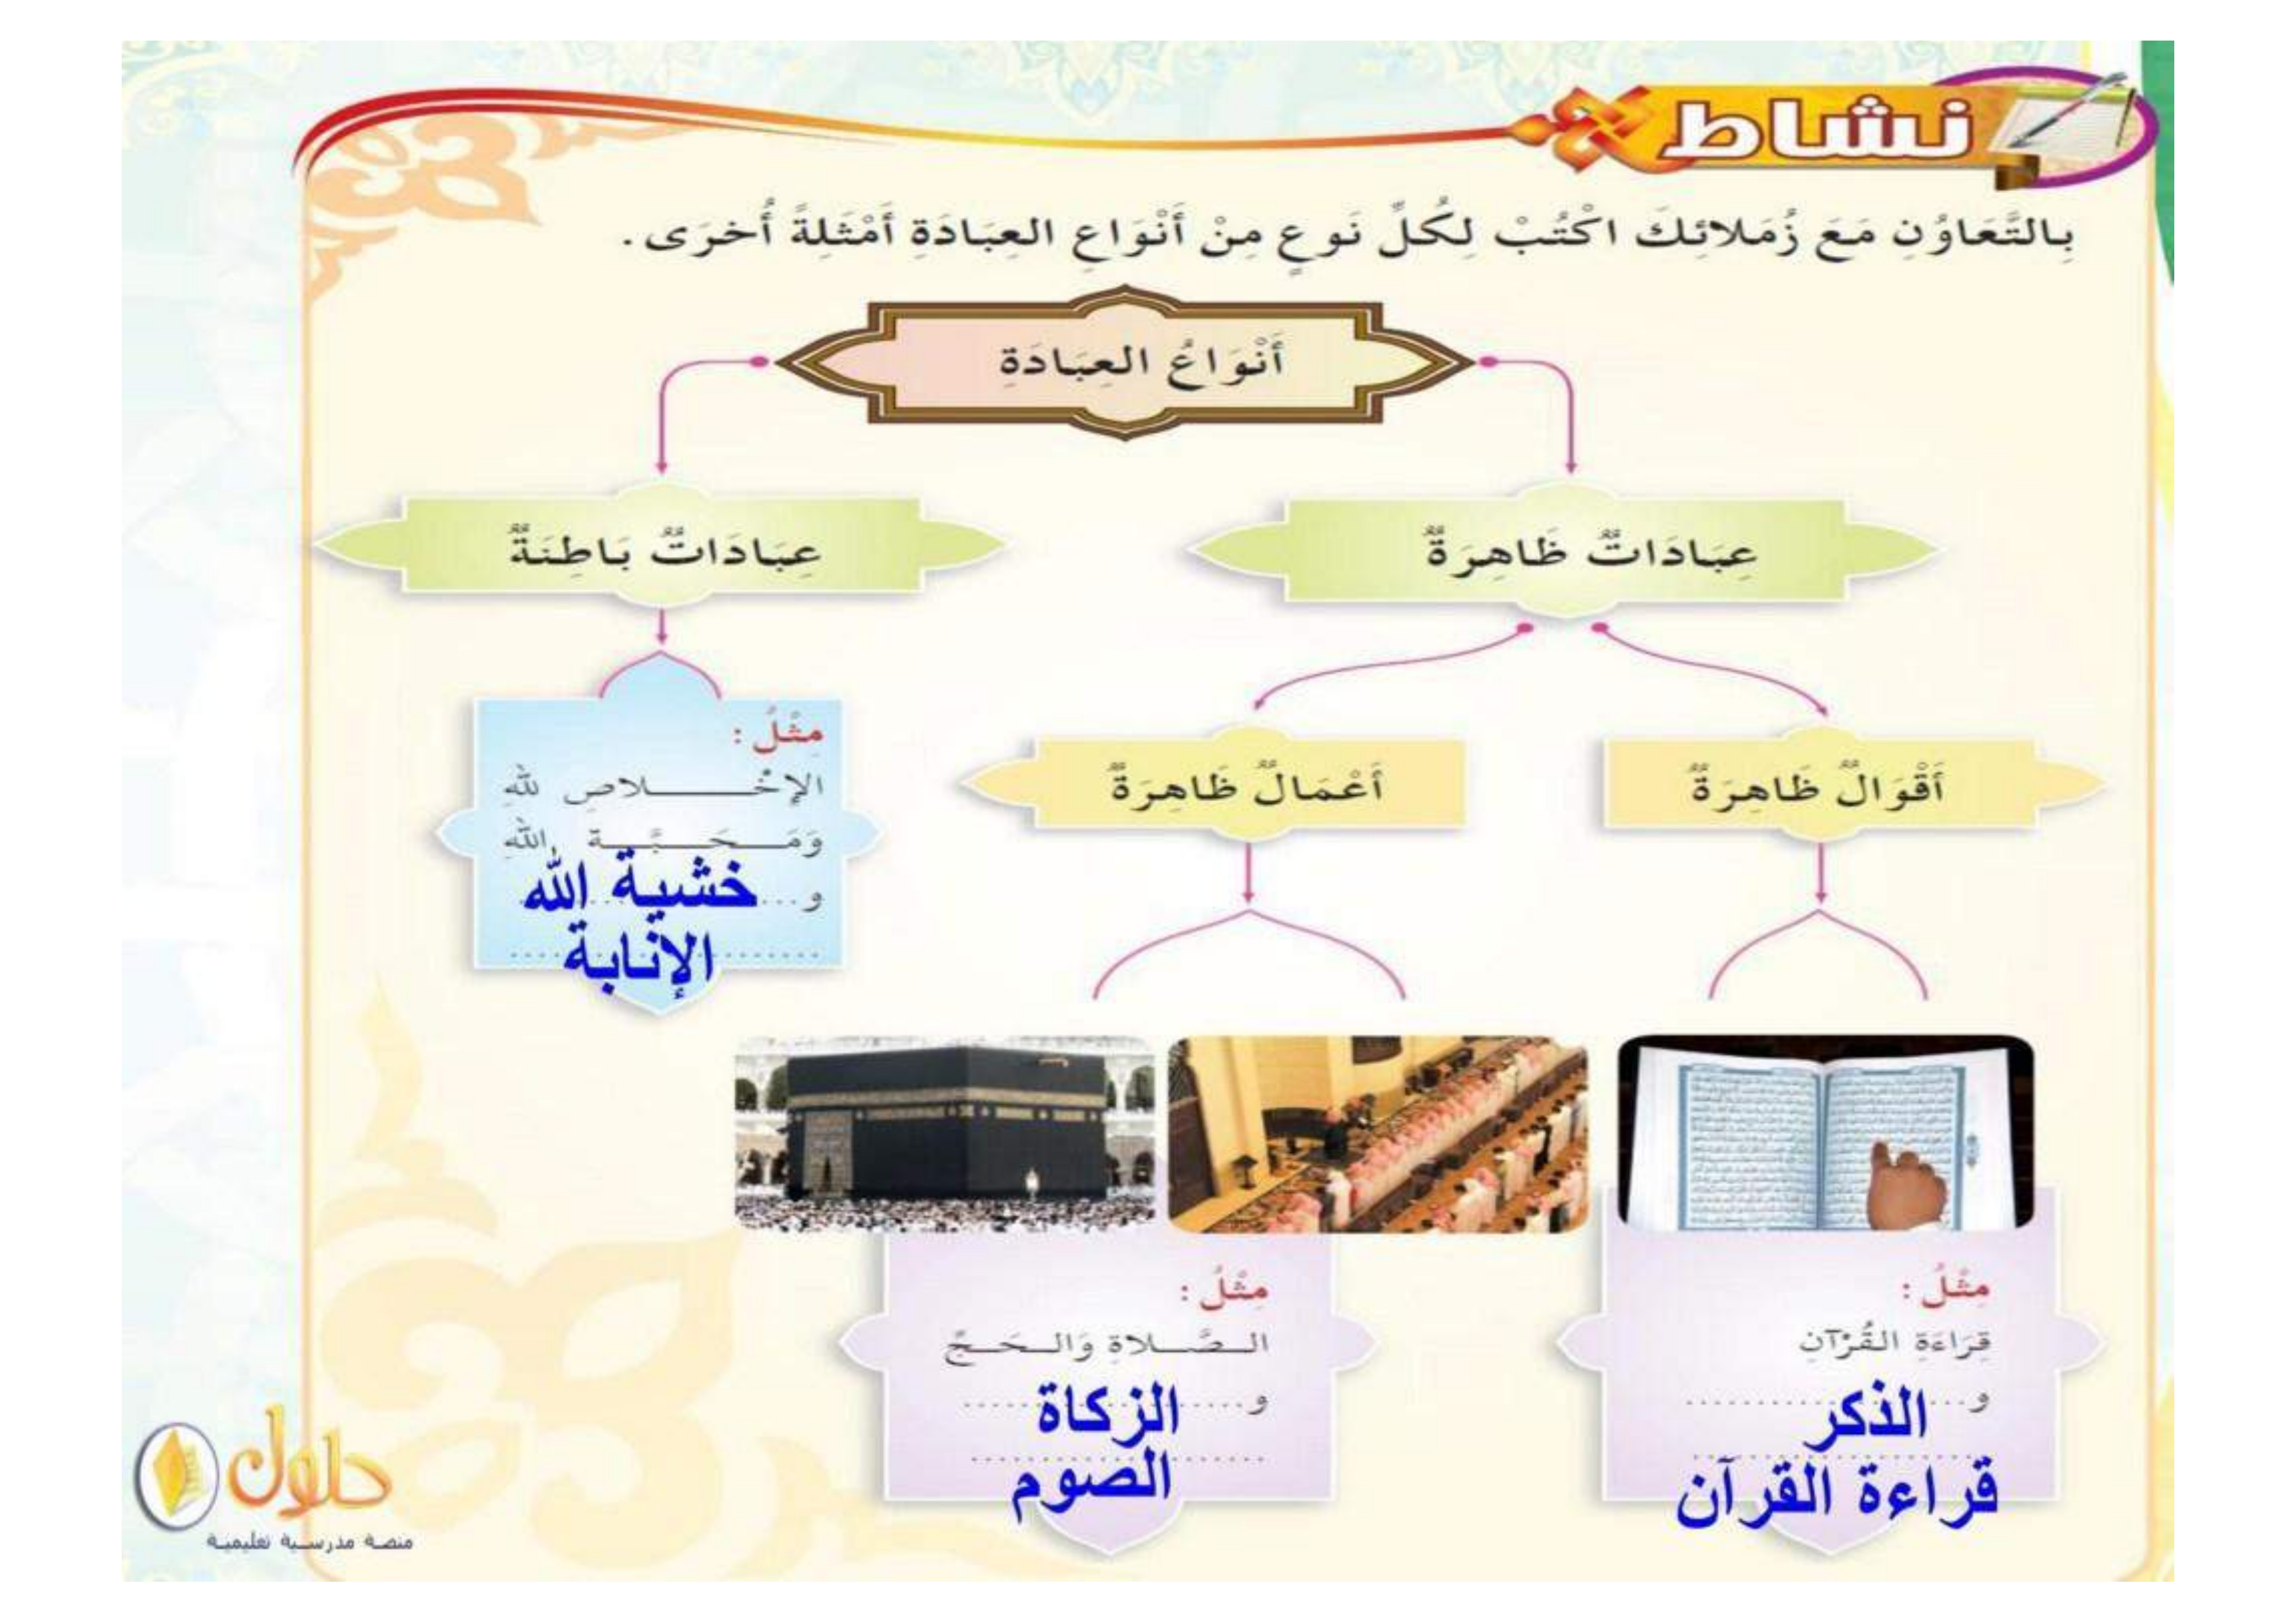 نشاط
بِالتَّعَاوُنِ مَعَ زُمَلائِكَ اكْتُبْ لِكُلِّ نَوعٍ مِنْ أَنْوَاعِ العِبَادَةِ أَمْثَلِةً أُخرَى.
أَنْوَاعُ العِبَادَةِ
عِبَادَاتٌ ظَاهِرَةٌ
عِبَادَاتٌ بَاطِنَةٌ
أَقْوَالٌ ظَاهِرَةٌ
أَعْمَالٌ ظَاهِرَةٌ
مِثْلُ :
الإِخْـلاصِ للهِ
وَمَحَبَّةِ اللهِ
و...خشية الله
الإنابة
مِثْلُ :
قِرَاءَةِ القُرْآنِ
و...الذكر
قراءة القرآن
مِثْلُ :
الصَّلاةِ وَالحَجِّ
و...الزكاة
الصوم
حلول
منصة مدرسية تعليمية